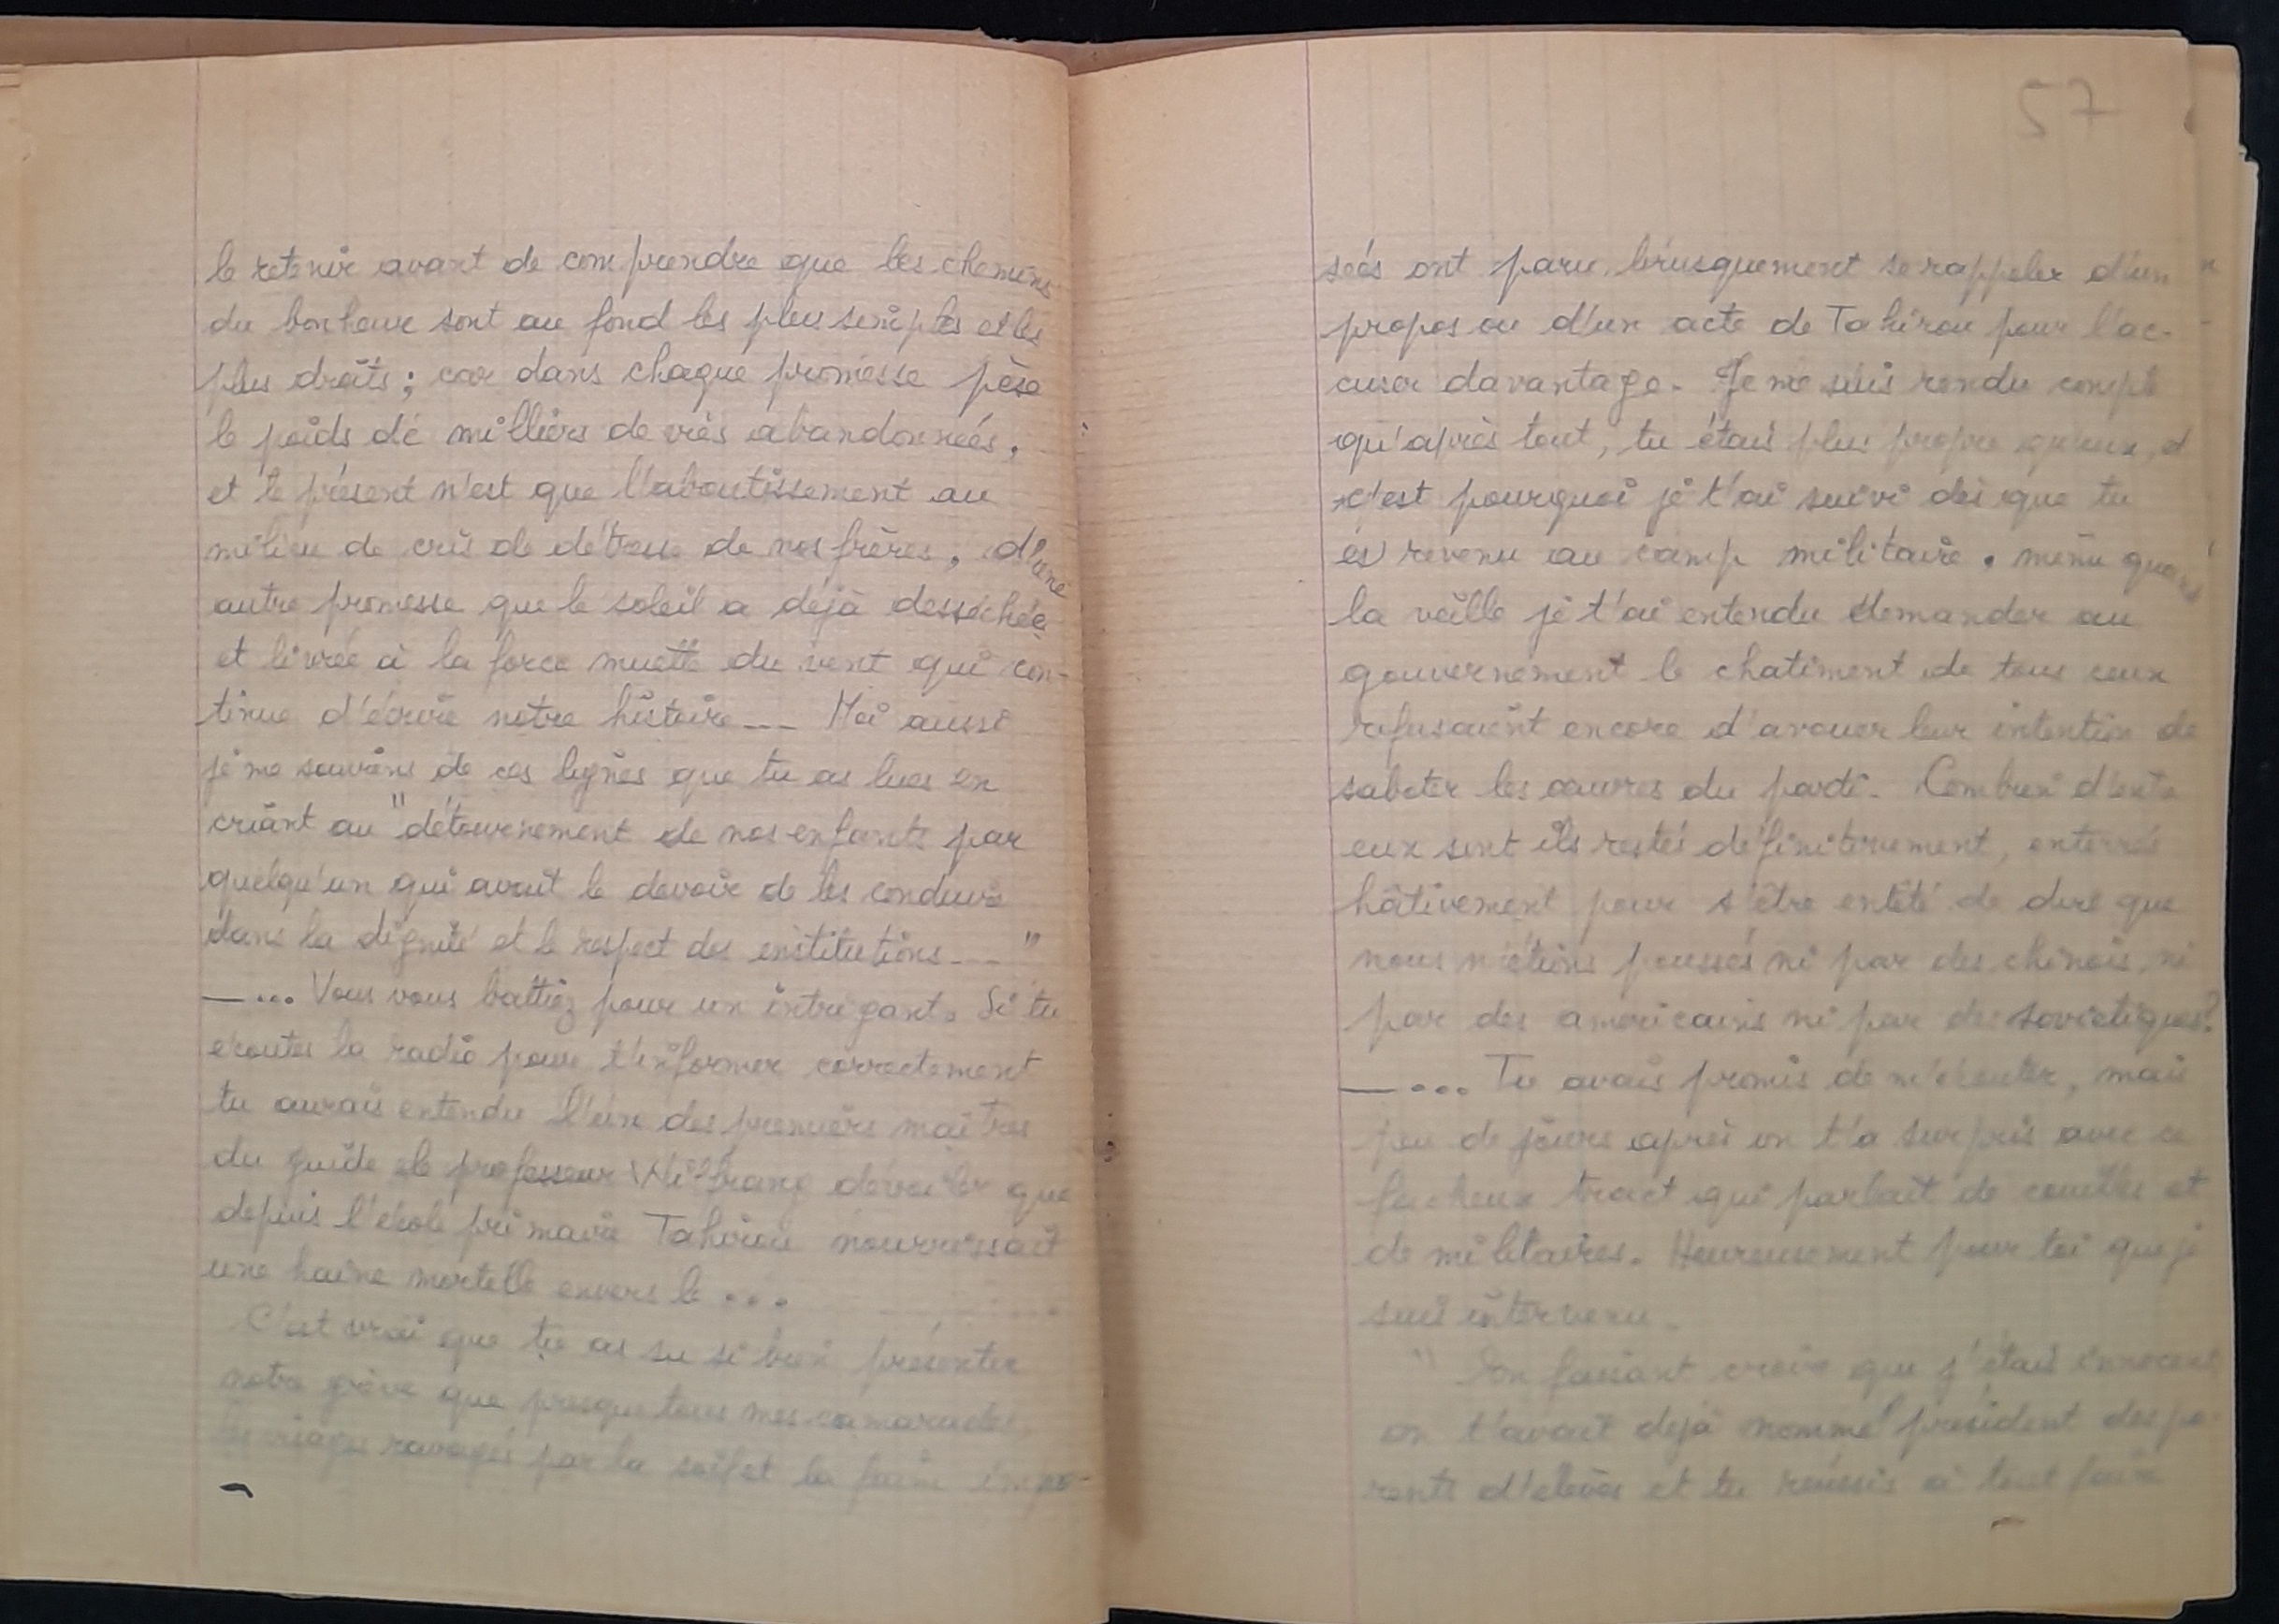 le retenir avant de comprendre que les chemins
du bonheur sont au fond les plus simples et les
plus droits ; car dans chaque promesse pèse
le poids de milliers de vies abandonnées,
et le présent n'est que l'aboutissement au
milieu de cris de détresse de nos frères, d'une
autre promesse que le soleil a déjà desséchée
et livrée à la force muette du vent qui con-
tinue d'écrire notre histoire--- Moi aussi
je me souviens de ces lignes que tu as lues en
criant au "détournement de nos enfants par
quelqu'un qui avait le devoir de les conduire
dans la dignité et le respect des institutions---"
—... Vous vous battiez pour un intrigant. Si tu
écoutes la radio pour t'informer correctement
tu aurais entendu l'un des premiers maîtres
du guide le professeur dévoiler que
depuis l'école primaire Tahirou nourrissait
une haine mortelle envers le ...
C'est vrai que tu as su si bien présenter
notre grève que presque tous mes camarades,
les visages ravagés par la soif et la faim
57
sées ont paru brusquement se rappeler d'un
propos ou d'un acte de Tahirou pour l'ac-
cuser davantage. Je me suis rendu compte
qu'après tout, tu étais plus propre qu'eux, et
c'est pourquoi je t'ai suivi dès que tu
es revenu au camp militaire. même quand
la veille je t'ai entendu demander au
gouvernement le chatiment de tous ceux
refusaient encore d'avouer leur intention de
saboter les oeuvres du parti. Combien d'entre
eux sont ils restés définitivement, enterrés
hâtivement pour s'être entêté de dire que
nous n'étions poussés ni par des chinois, ni
par des américains ni par des soviétiques?
—... Tu avais promis de m'écouter, mais
peu de jours après on t'a surpris avec ce
facheux tract qui parlait de et
de militaires. Heureusement pour toi que je
suis intervenu.
" En faisant croire que j'étais innocent
on t'avait déjà nommé président des pa-
rents d'élèves et tu réussis à tout faire